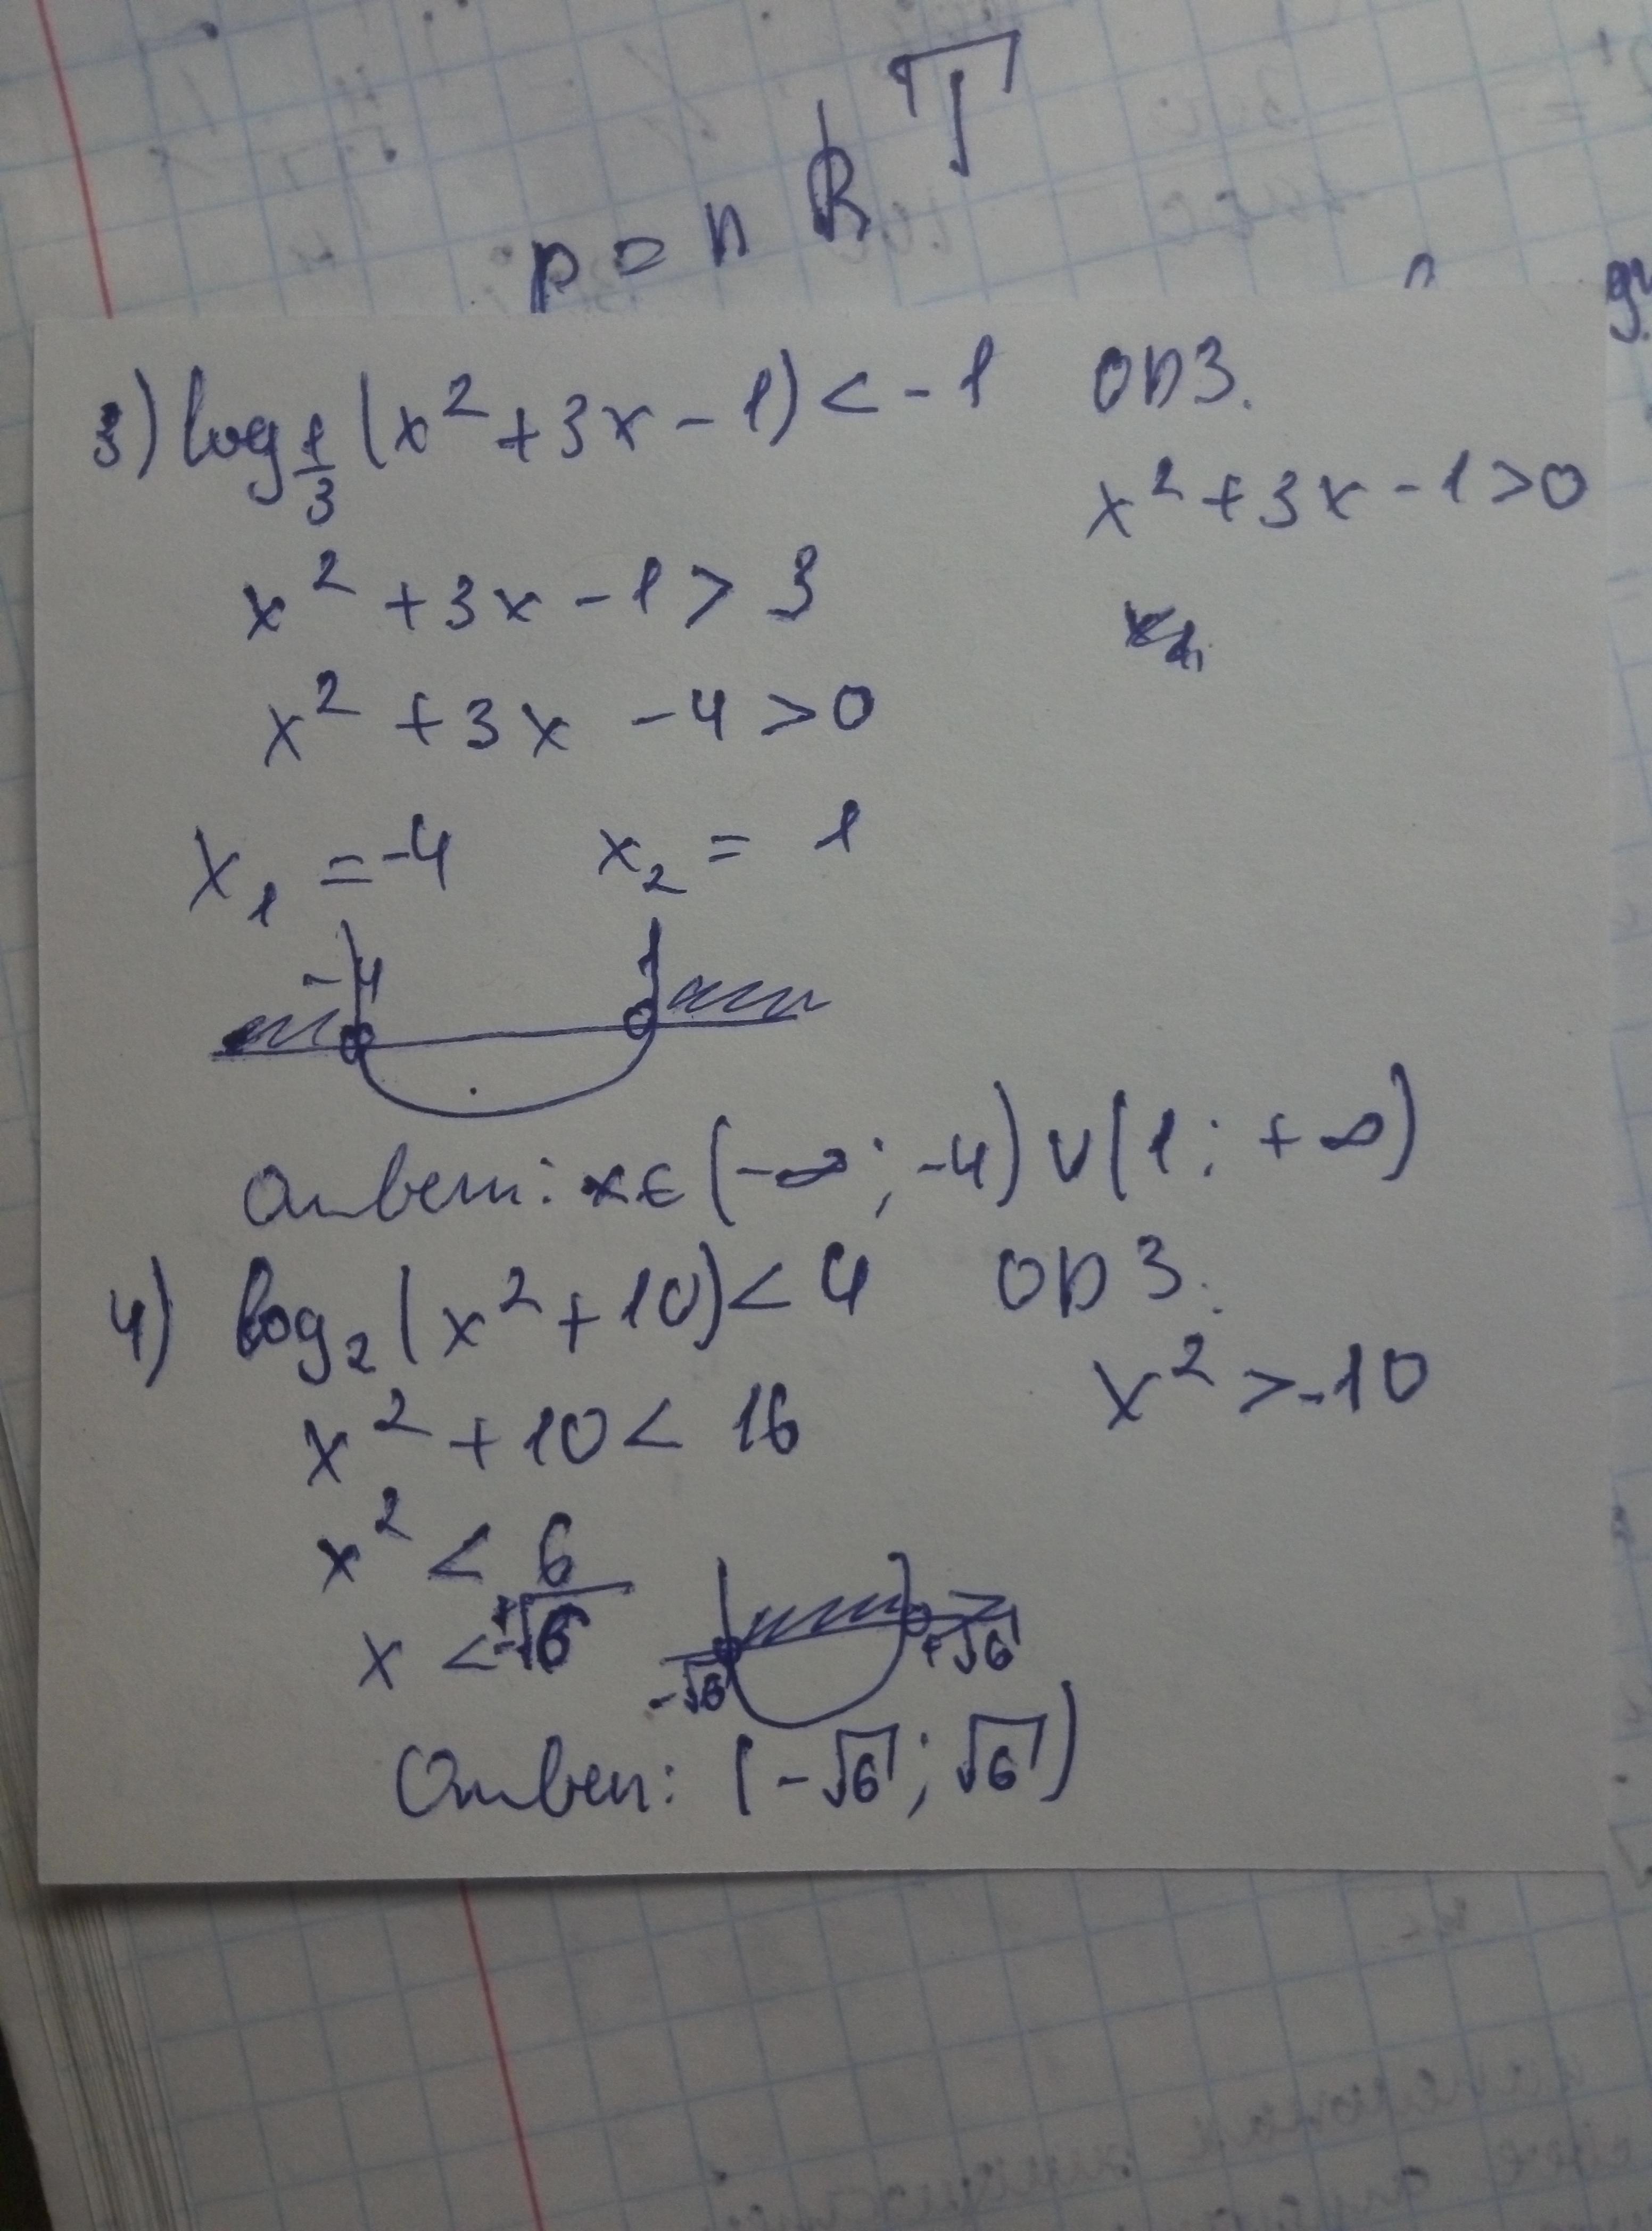 p = n R T
3) log 1/3 (x² + 3x - 1) < -1 ОДЗ.
x² + 3x - 1 > 0
x² + 3x - 1 > 3
x² + 3x - 4 > 0
x₁ = -4 x₂ = 1
-4 1
Ответ: x ∈ (-∞; -4) ∪ (1; +∞)
4) log₂ (x² + 10) < 4 ОДЗ.
x² > -10
x² + 10 < 16
x² < 6
x < ±√6
-√6 +√6
Ответ: (-√6; √6)